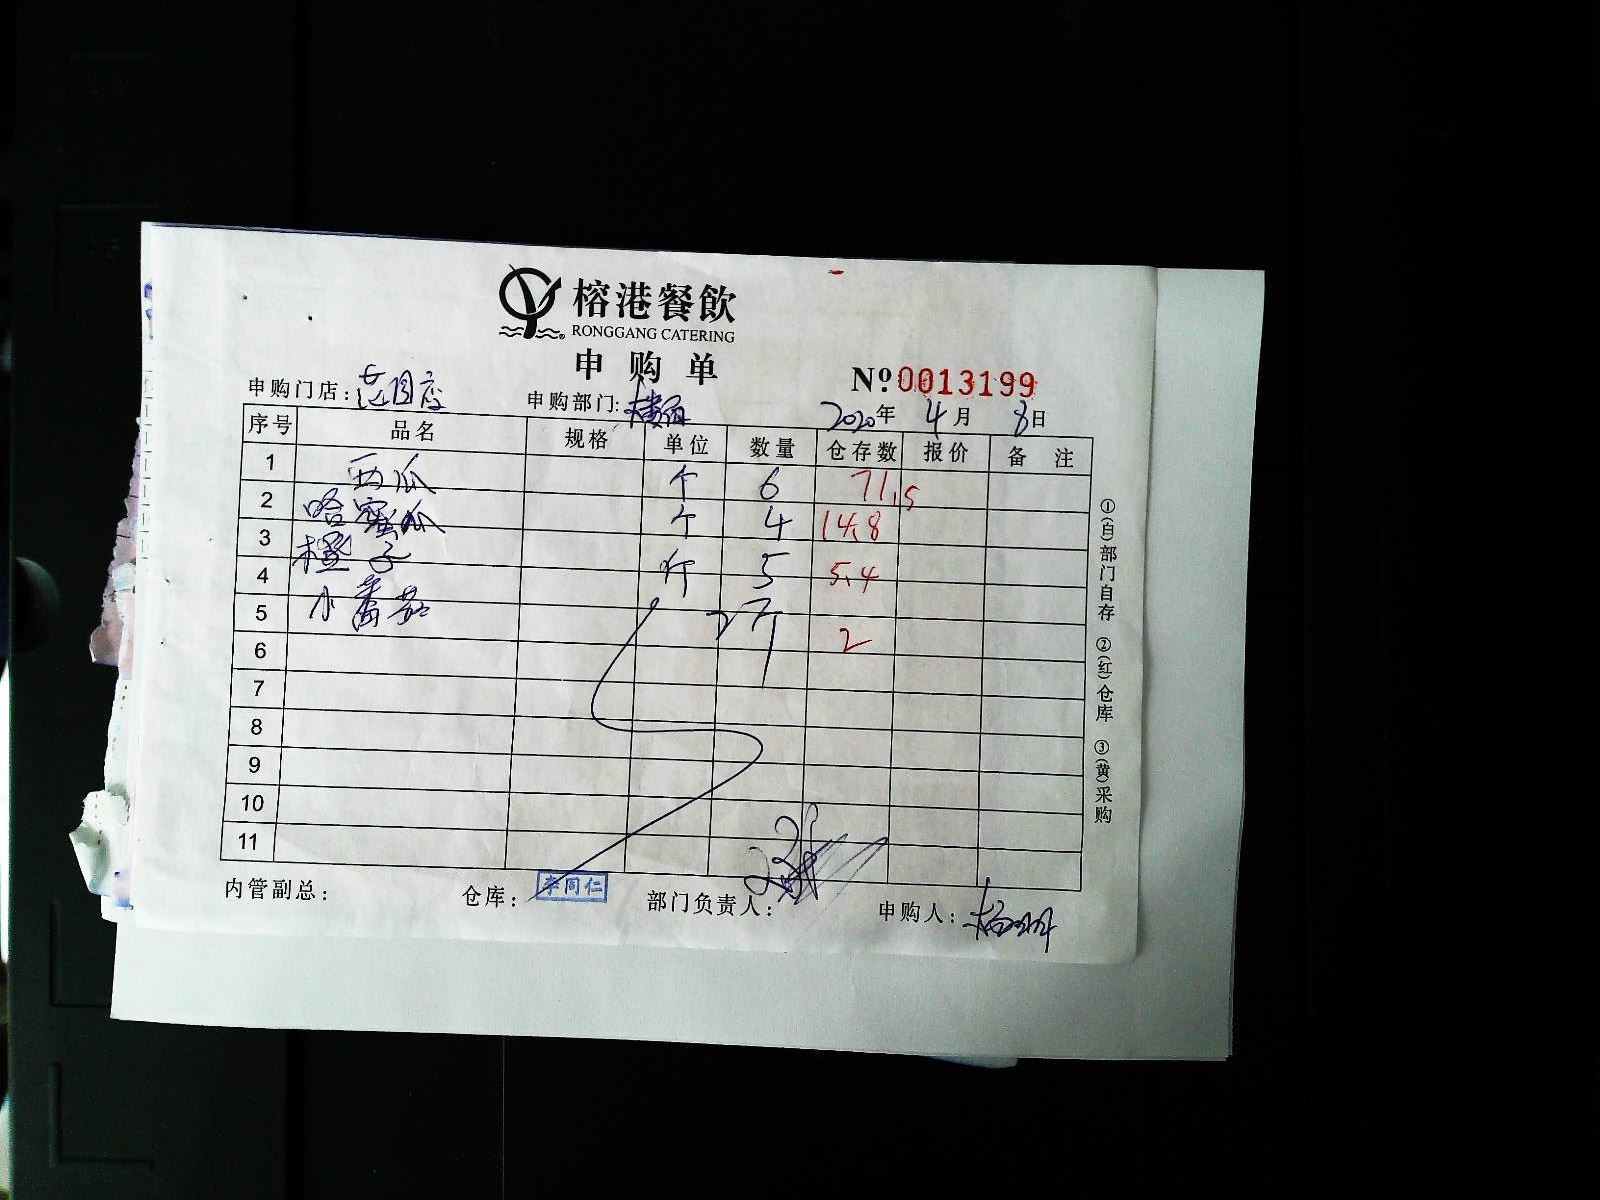 榕港餐飲
RONGGANG CATERING
申购单
№ 0013199
申购门店: 申购部门: 楼面 2020年 4月 8日
序号 品名 规格 单位 数量 仓存数 报价 备注
1 西瓜 个 6 71.5
2 哈蜜瓜 个 4 14.8
3 橙子 斤 5 5.4
4 小番茄 斤 2 2
5
6
7
8
9
10
11
①(白)部门自存 ②(红)仓库 ③(黄)采购
内管副总: 仓库: 李同仁 部门负责人: 申购人: